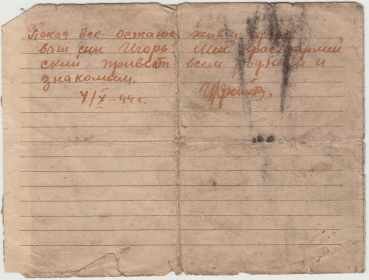 Пока все остаюсь жив
ваш сын Игорь. Мой красноармей
ский привет всем родным и
знакомым.
4/X-44г.